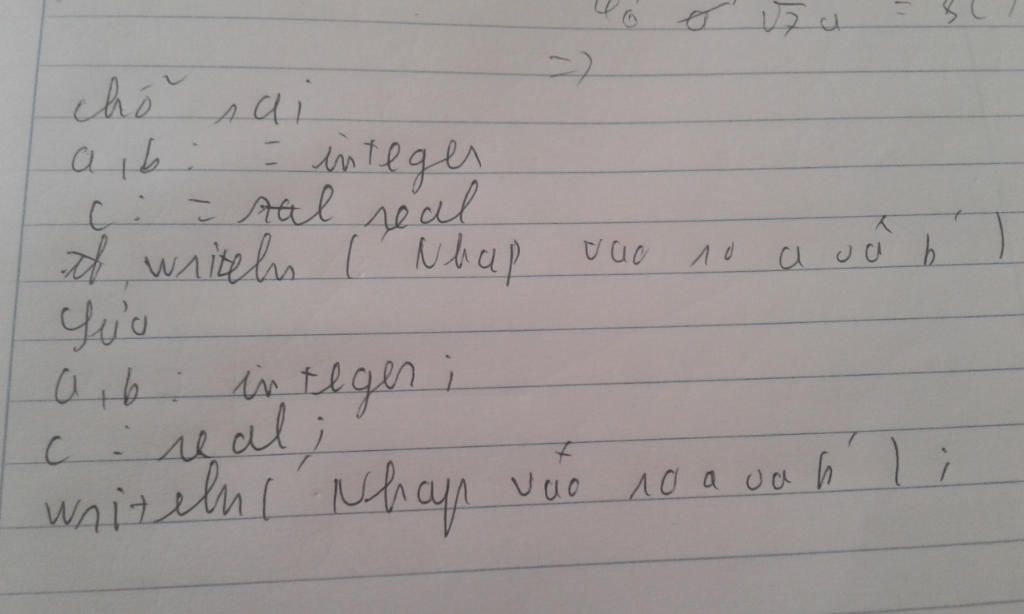 =>
chỗ sai
a, b : = integer
c : = real
writeln ( ' Nhap vao so a và b ' )
Sửa
a, b : integer ;
c : real ;
writeln ( ' Nhap vào so a va b ' ) ;